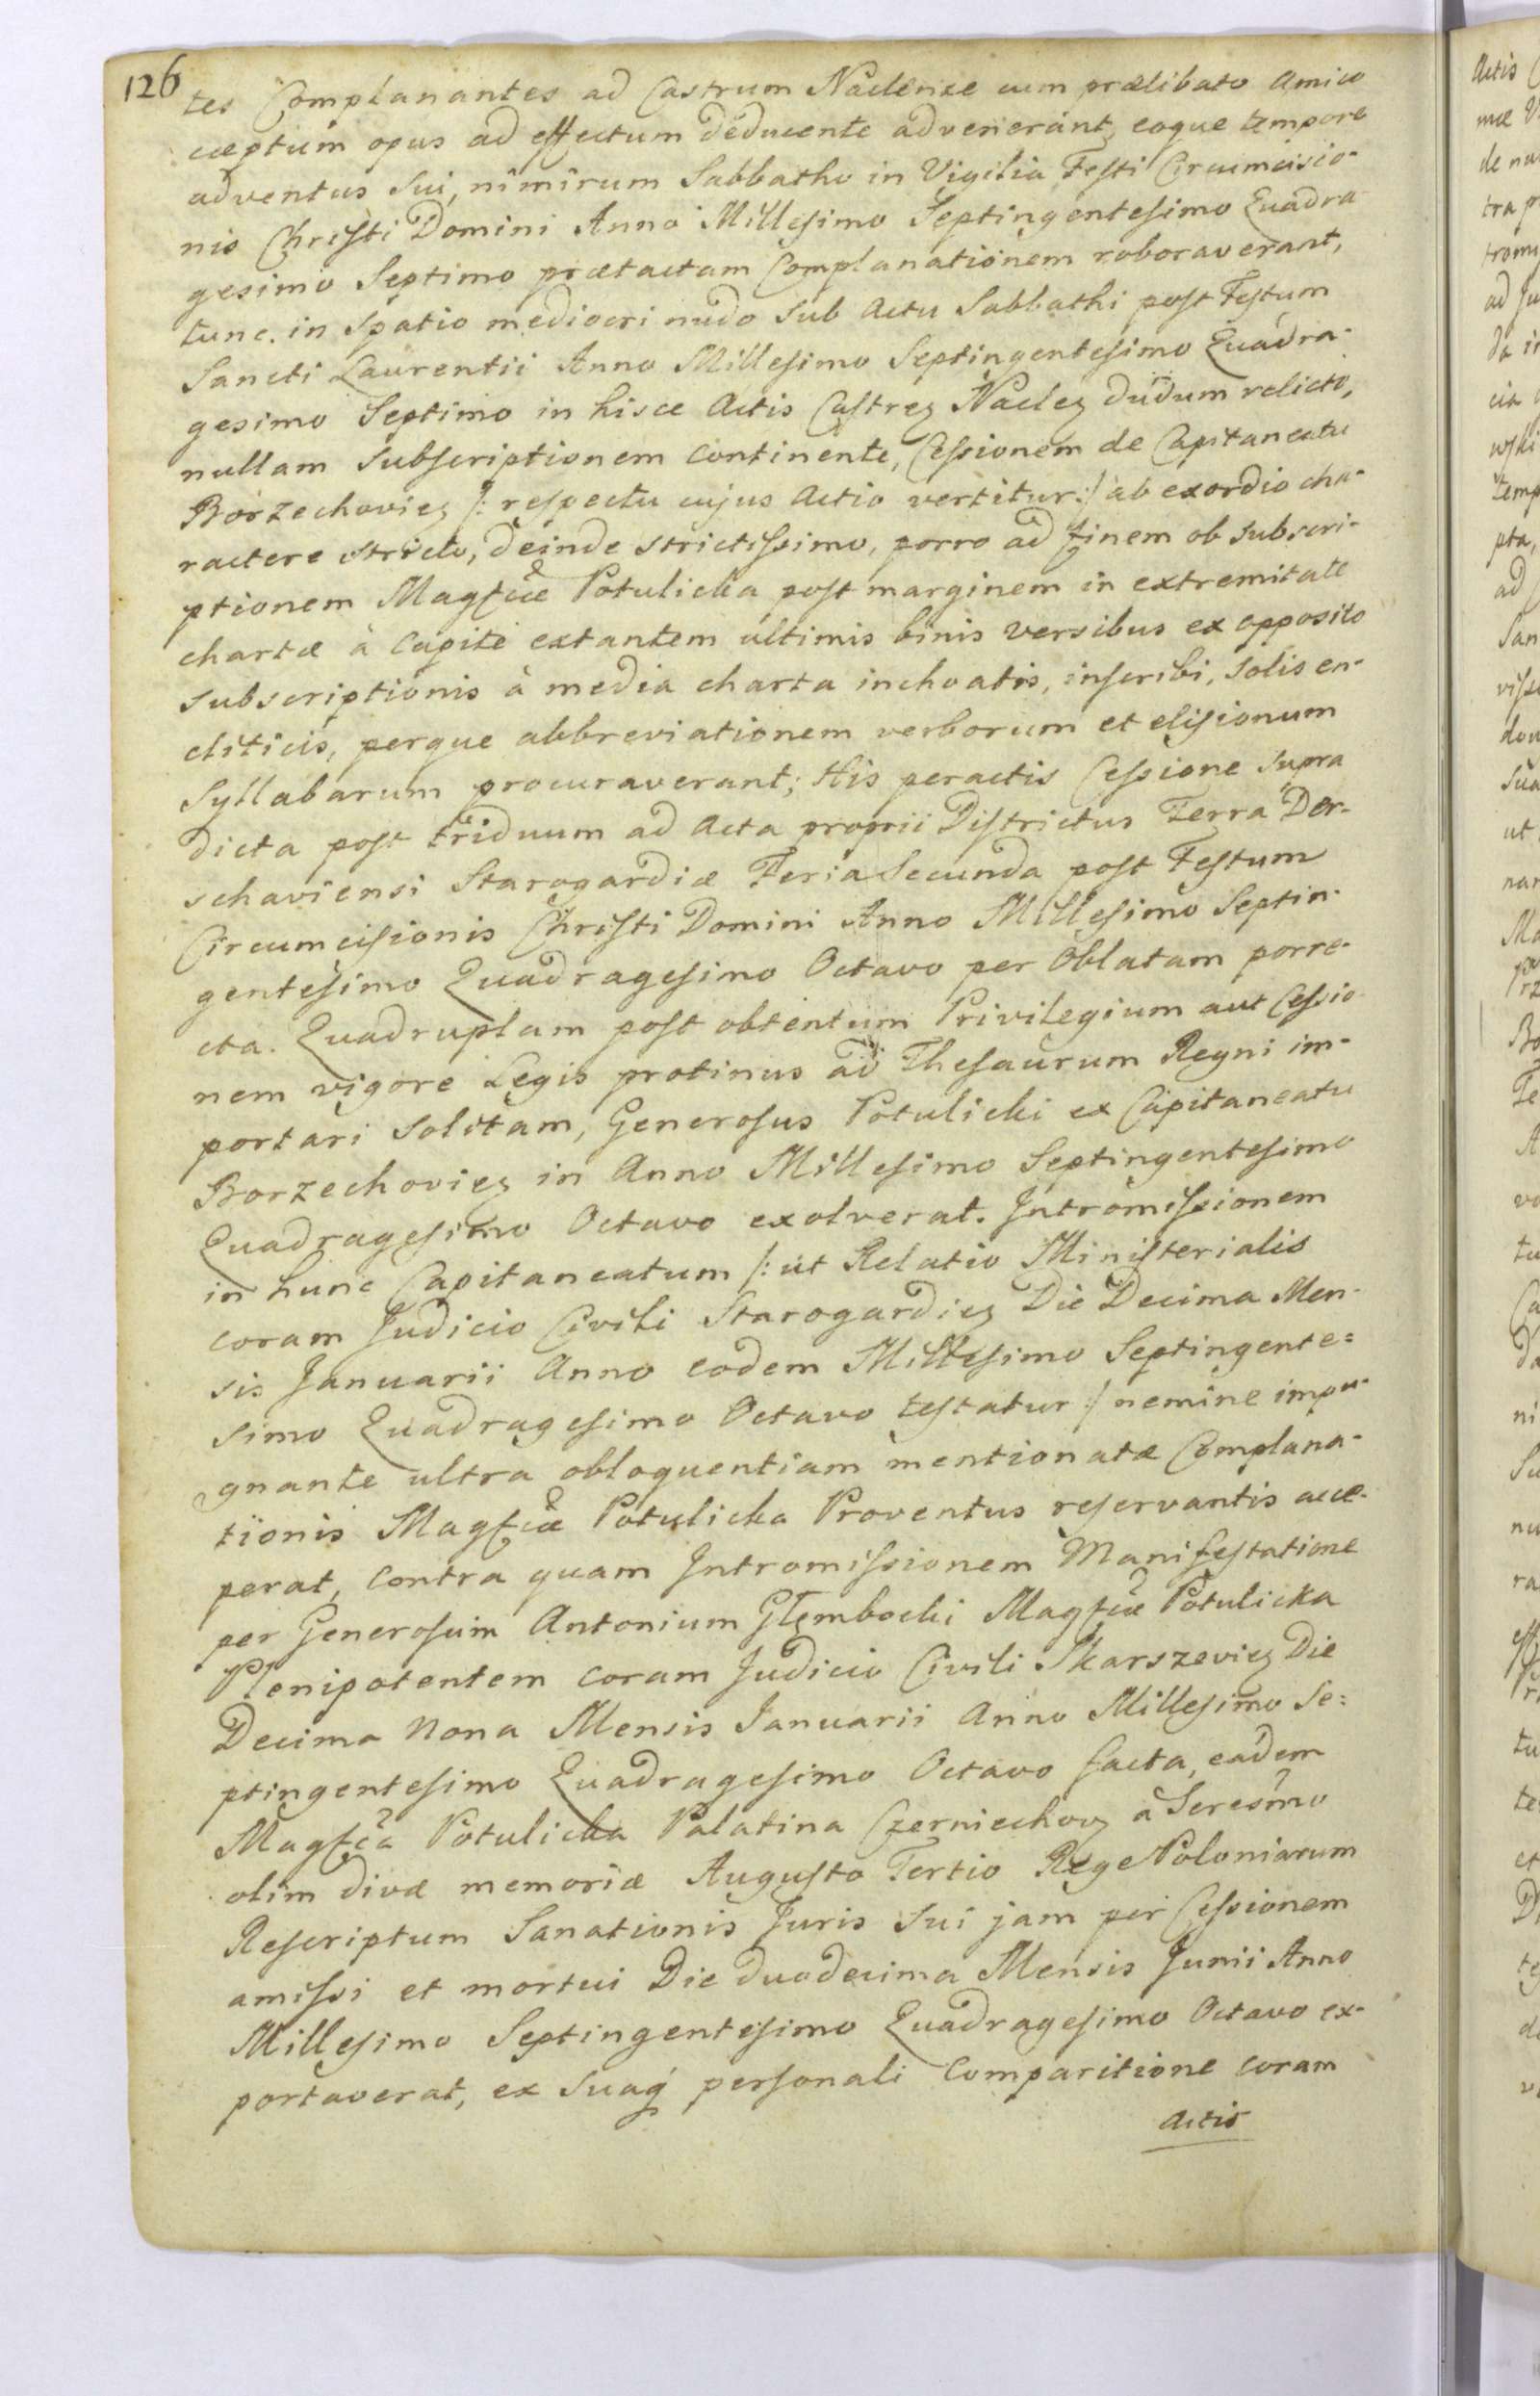 126
tes Complanantes ad Castrum Naclense cum prælibato Amico
cæptum opus ad effectum deducente advenerant, eoque tempore
adventus sui, nimirum Sabbatho in Vigilia Festi Circumcisio-
nis Christi Domini Anno Millesimo Septingentesimo Quadra
gesimo Septimo prætactam Complanationem roboraverant,
tunc. in spatio mediocri nudo sub Actu Sabbathi post Festum
Sancti Laurentii Anno Millesimo Septingentesimo Quadra-
gesimo Septimo in hisce Actis Castreз Nacleз dudum relicto,
nullam subscriptionem continente, Cessionem de Capitaneatu
Borzechovieз /: respectu cujus Actio vertitur :/ ab exordio cha-
ractere stricto, deinde strictissimo, porro ad finem ob subscri-
ptionem Magfcæ Potulicka post marginem in extremitate
chartæ à capite extantem ultimis binis versibus ex opposito
subscriptionis à media charta inchoatis, inscribi, solis en-
cliticis, perque abbreviationem verborum et elisionum
Syllabarum procuraverant; His peractis Cessione supra
dicta post triduum ad Acta proprii Districtus Terra Der-
schaviensi Starogardiæ Feria Secunda post Festum
Circumcisionis Christi Domini Anno Millesimo Septin-
gentesimo Quadragesimo Octavo per Oblatam porre-
cta. Quadruplam post obtentum Privilegium aut Cessio
nem vigore Legis protinus ad Thesaurum Regni im-
portari solitam, Generosus Potulicki ex Capitaneatu
Borzechovieз in Anno Millesimo Septingentesimo
Quadragesimo Octavo exolverat. Intromissionem
in hunc Capitaneatum /: ut Relatio Ministerialis
coram Judicio Civili Starogardieз Die Decima Men-
sis Januarii Anno eodem Millesimo Septingente=
simo Quadragesimo Octavo testatur :/ nemine impu-
gnante ultra obloquentiam mentionatæ Complana-
tionis Magfcæ Potulicka Proventus reservantis acce-
perat, contra quam Intromissionem Manifestatione
per Generosum Antonium Głembocki Magfcæ Potulicka
Plenipotentem coram Judicio Civili Skarszevieз Die
Decima Nona Mensis Januarii Anno Millesimo Se=
ptingentesimo Quadragesimo Octavo facta, eadem
Magfca Potulicka Palatina Czerniechovз à Seresmo
olim divæ memoriæ Augusto Tertio Rege Poloniarum
Rescriptum Sanationis Juris sui jam per Cessionem
amissi et mortui Die duodecima Mensis Junii Anno
Millesimo Septingentesimo Quadragesimo Octavo ex-
portaverat, ex suaq́ personali Comparitione coram
Actis